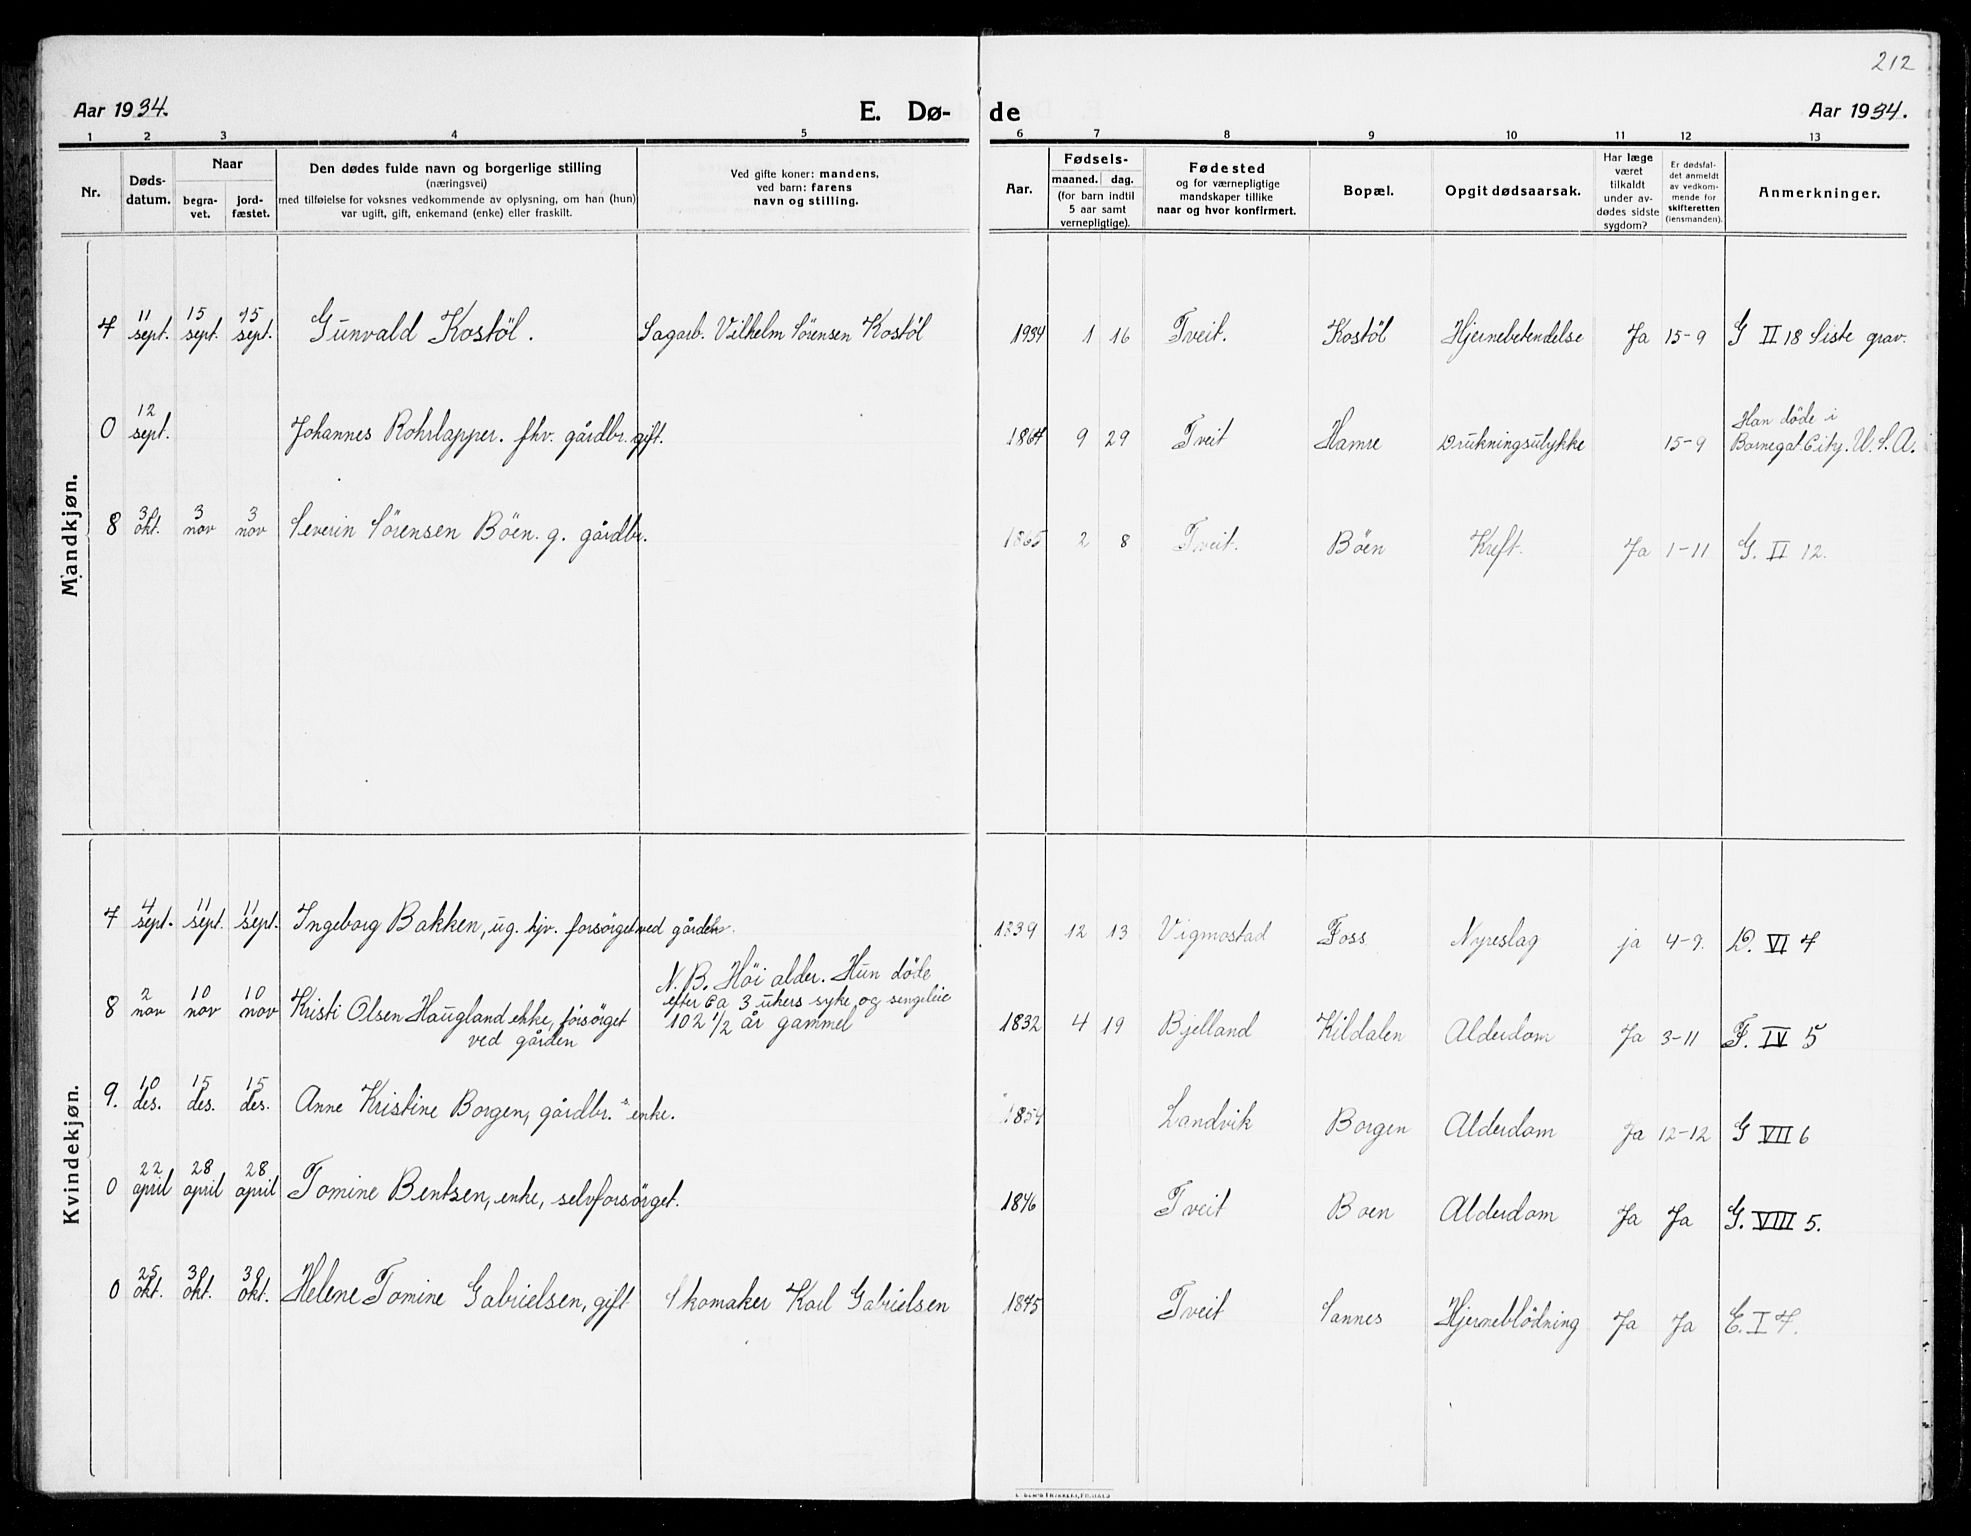 212
Aar 1934. E. Dø- de Aar 1934.
1 2 3 4 5 6 7 8 9 10 11 12 13
Nr. Døds-datum. Naar begra-vet. jord-fæstet. Den dødes fulde navn og borgerlige stilling (næringsvei) med tilføielse for voksnes vedkommende av oplysning, om han (hun) var ugift, gift, enkemand (enke) eller fraskilt. Ved gifte koner: mandens, ved barn: farens navn og stilling. Aar. Fødsels- maaned. dag. (for barn indtil 5 aar samt vernepligtige). Fødested og for værnepligtige mandskaper tillike naar og hvor konfirmert. Bopæl. Opgit dødsaarsak. Har læge været tilkaldt under av-dødes sidste sygdom? Er dødsfal-det anmeldt av vedkom-mende for skifteretten (lensmanden). Anmerkninger.
Mandkjøn.
7 11 sept. 15 sept. 15 sept. Gunvald Kostöl. Sagarb. Vilhelm Sörensen Kostöl 1934 1 16 Tveit. Kostöl Hjernebetendelse Ja 15-9 G II 18 Siste grav.
0 12 sept. Johannes Rohrlapper. fhv. gårdbr. gift. 1864 9 29 Tveit Hamre Drukningsulykke 15-9 Han döde i Barnegat City. U.S.A.
8 30 okt. 3 nov 3 nov Severin Sörensen Böen. g. gårdbr. 1865 2 8 Tveit. Böen Kreft. Ja 1-11 G. II 12.
Kvindekjøn.
7 4 sept. 11 sept. 11 sept. Ingeborg Bakken, ug. hjv. forsörget ved gården. 1839 12 13 Vigmostad Foss Nyreslag ja 4-9. D. VI 7
8 2 nov 10 nov 10 nov Kristi Olsen Haugland enke, forsörget ved gården N.B. Höi alder. Hun döde efter ca 3 ukers syke og sengeleie 102 1/2 år gammel 1832 4 19 Bjelland Kildalen Alderdom Ja 3-11 F. IV 5
9. 10 des. 15 des. 15 des. Anne Kristine Borgen, gårdbr.s. enke. 1854 Landvik Borgen Alderdom Ja 12-12 G VII 6
0 22 april 28 april 28 april Tomine Bentsen, enke, selvforsörget. 1846 Tveit Boen Alderdom Ja Ja G. VIII 5.
0 25 okt. 30 okt. 30 okt. Helene Tomine Gabrielsen, gift Skomaker Karl Gabrielsen 1845 Tveit Sannes Hjerneblödning Ja Ja E. I 7.